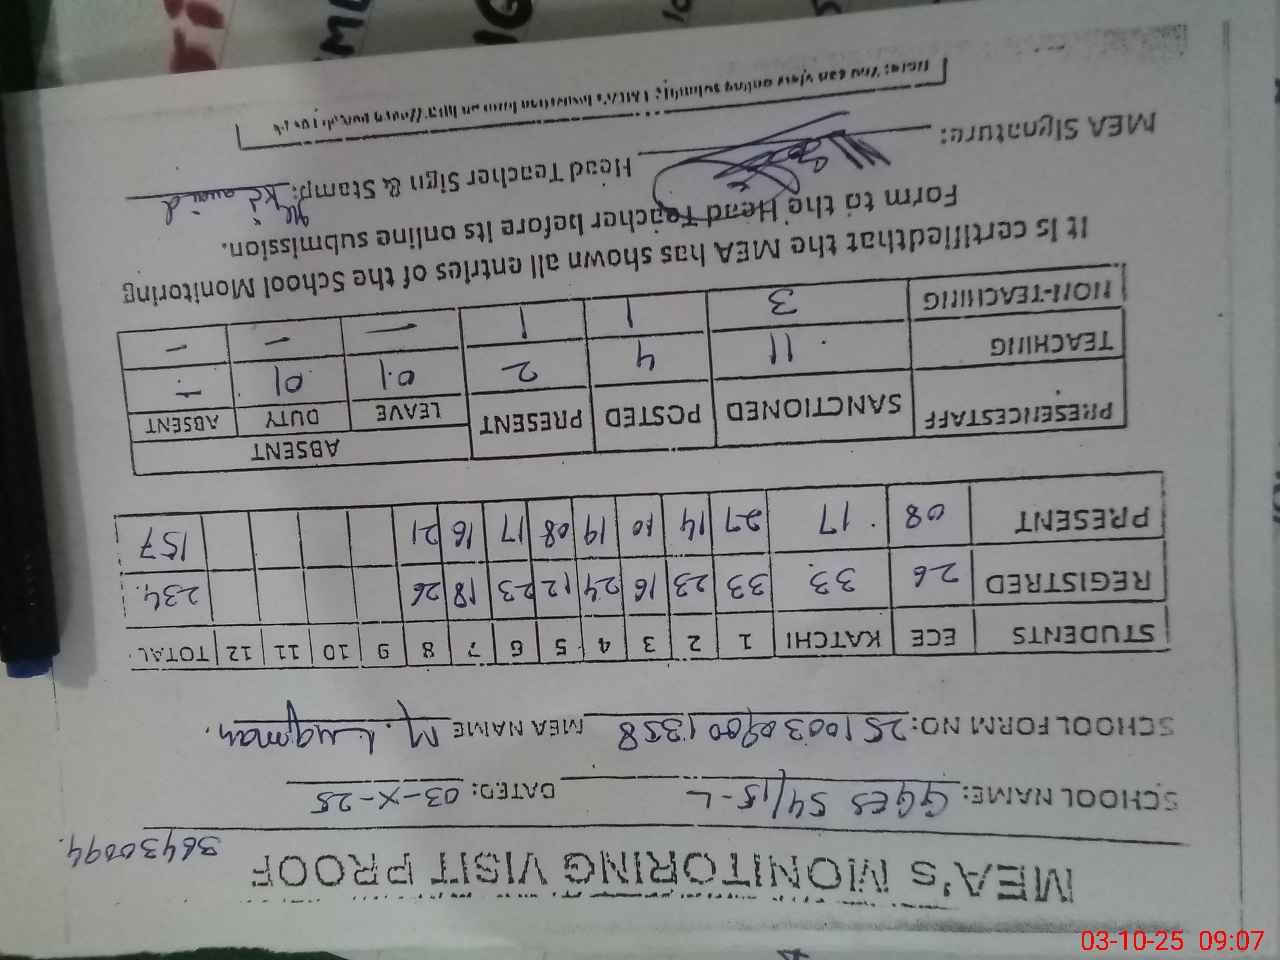 MEA's MONITORING VISIT PROOF
36430094.
SCHOOL NAME: GGES 54/15-L DATED: 03-X-25
SCHOOL FORM NO: 25100309001358 MEA NAME M. Luqman.
STUDENTS ECE KATCHI 1 2 3 4 5 6 7 8 9 10 11 12 TOTAL
REGISTRED 26 33 33 23 16 24 12 23 18 26 234
PRESENT 08 17 27 14 10 19 08 17 16 21 157
PRESENCESTAFF SANCTIONED POSTED PRESENT ABSENT
LEAVE DUTY ABSENT
TEACHING 11 4 2 01 01 –
NON-TEACHING 3 1 1 – – –
It is certifiedthat the MEA has shown all entries of the School Monitoring
Form to the Head Teacher before its online submission.
MEA Signature: Head Teacher Sign & Stamp:
Note: You can view online
03-10-25 09:07